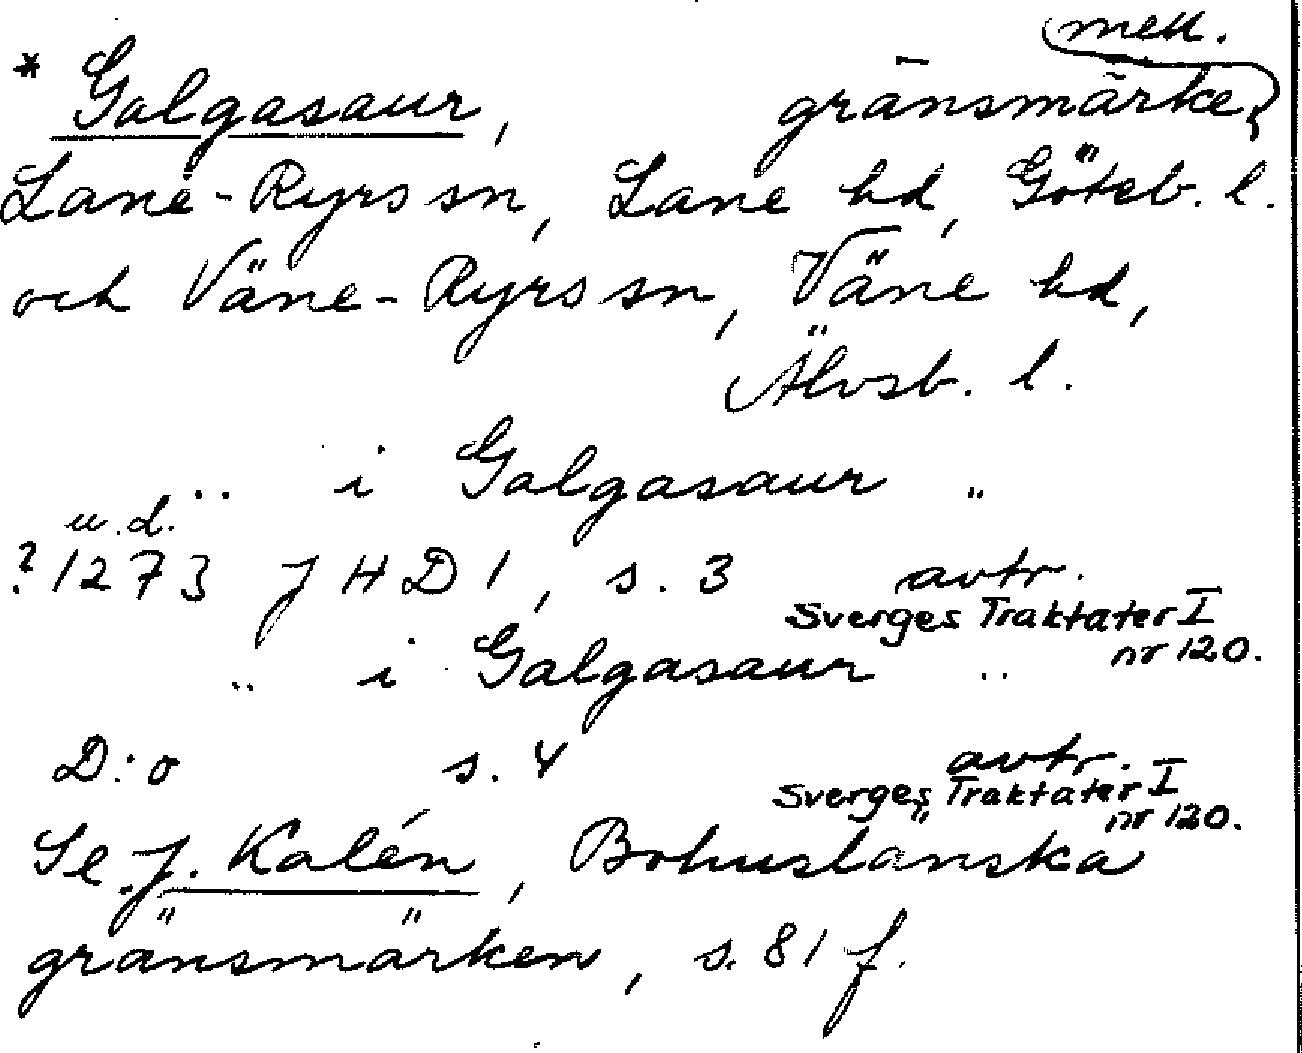 mell.
* Galgasaur, gränsmärke
Lane-Ryrs sn, Lane hd, Göteb. l.
och Väne-Ryrs sn, Väne hd,
Älvsb. l.
.. i Galgasaur "
u.d.
? 1273 JHD 1, s. 3 avtr.
Sverges Traktater I
nr 120.
.. i Galgasaur ..
D:o s. 4 avtr.
Sverges Traktater I
nr 120.
Se J. Kalén, Bohuslänska
gränsmärken, s. 81 f.